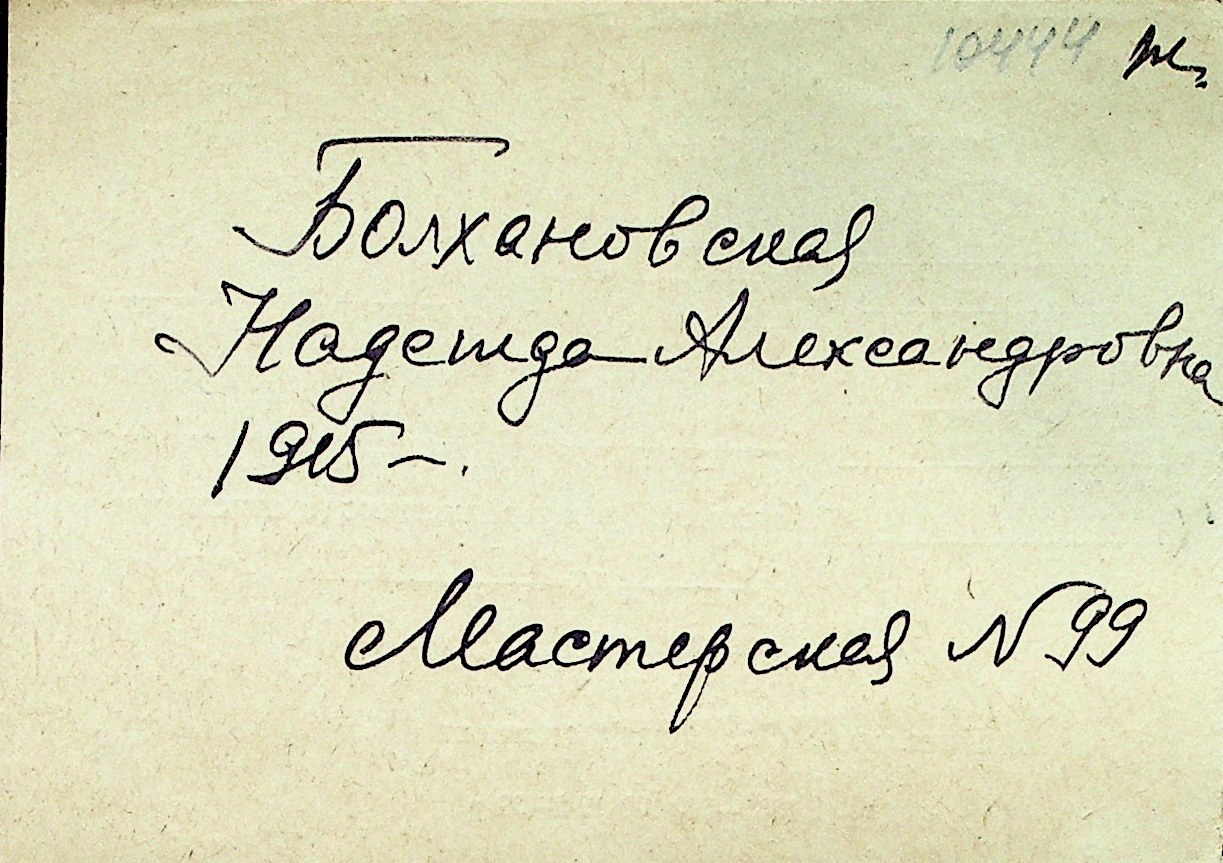 10444 ж.
Болхановская
Надежда Александровна
1915–.
Мастерская N 99